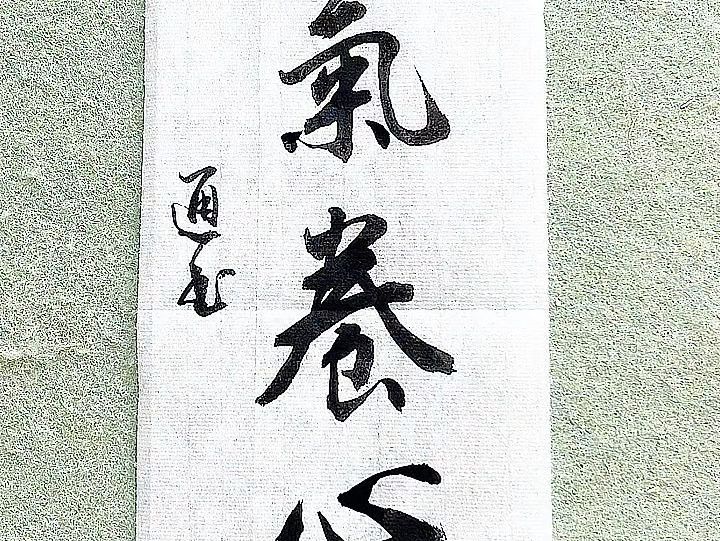 氣養心
通書